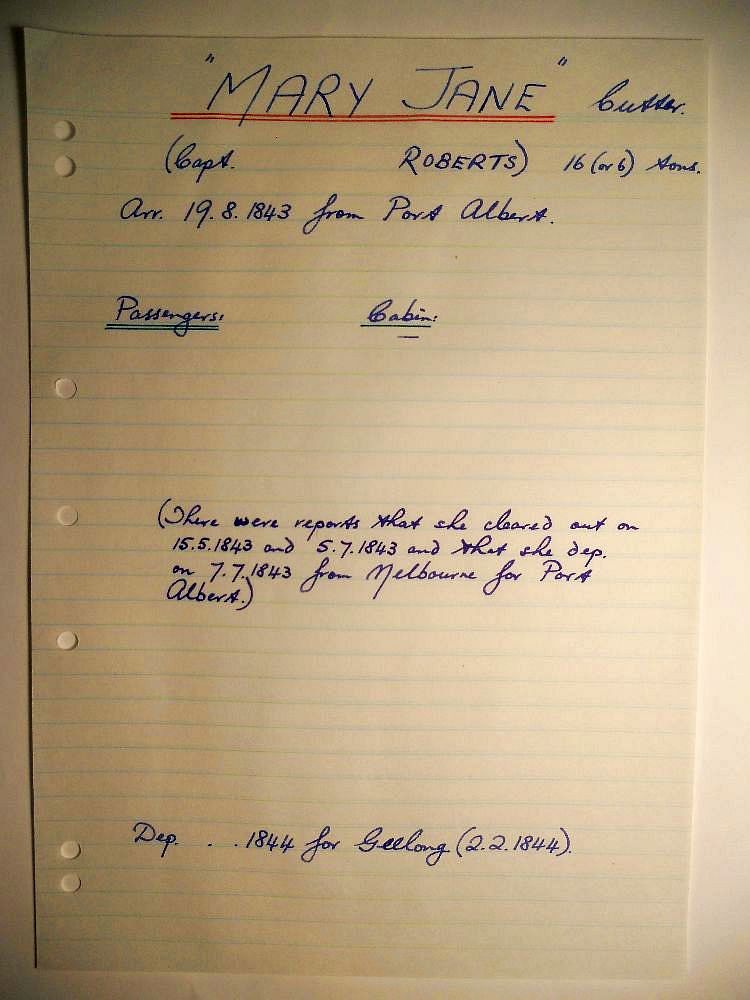 "MARY JANE" Cutter.
(Capt. ROBERTS) 16 (or 6) tons.
Arr. 19.8.1843 from Port Albert.
Passengers: Cabin:
(There were reports that she cleared out on
15.5.1843 and 5.7.1843 and that she dep.
on 7.7.1843 from Melbourne for Port
Albert.)
Dep. . . 1844 for Geelong (2.2.1844).